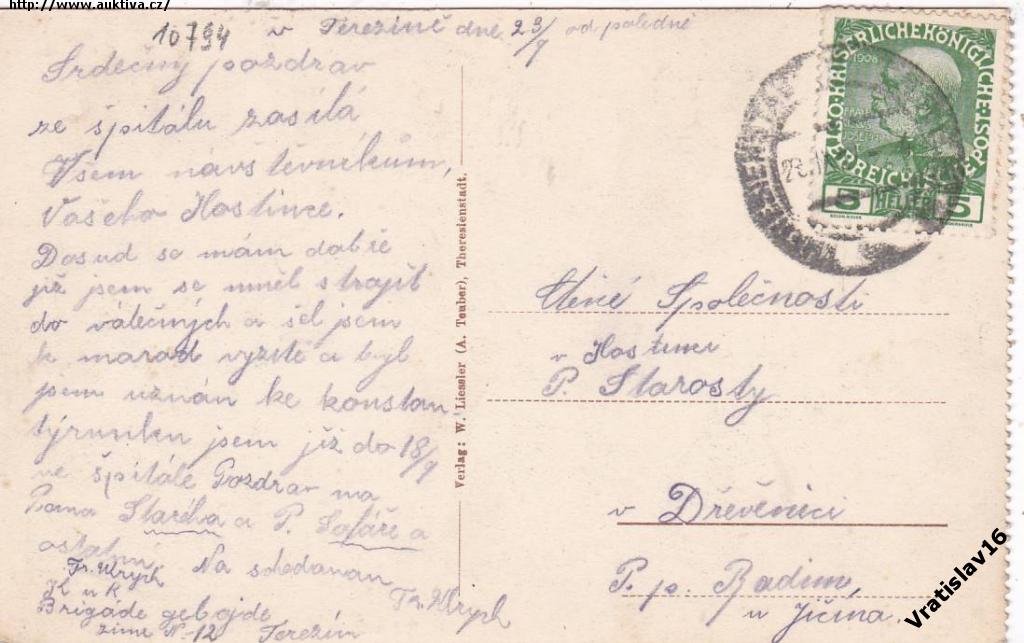 http://www.auktiva.cz/
10794
v Terezíně dne 23/9 odpoledne
Srdečný pozdrav
ze špitálu zasílá
Všem návštěvníkům,
Vašeho Hostince.
Dosud se mám dobře
již jsem se měl strojit
do válečných a šel jsem
k marod vyzitě a byl
jsem uznán ke konstan
týrunku jsem již do 18/9
ve špitále Pozdrav na
Pana Starého a P. Šafáře a
ostatní
Na shledanou
Fr. Ulrych
Fr. Ulrych
K u K
Brigáde
zime N-12 Terezín
Verlag: W. Liessler (A. Teuber), Theresienstadt.
KAISERLICHEKÖNIGLICHE
ÖSTERREICHISCHE POST
1908
5 HELLER 5
Ctěné Společnosti
v Hostinci
P. Starosty
v Dřevěnici
P. p. Radim,
u Jičína
Vratislav16